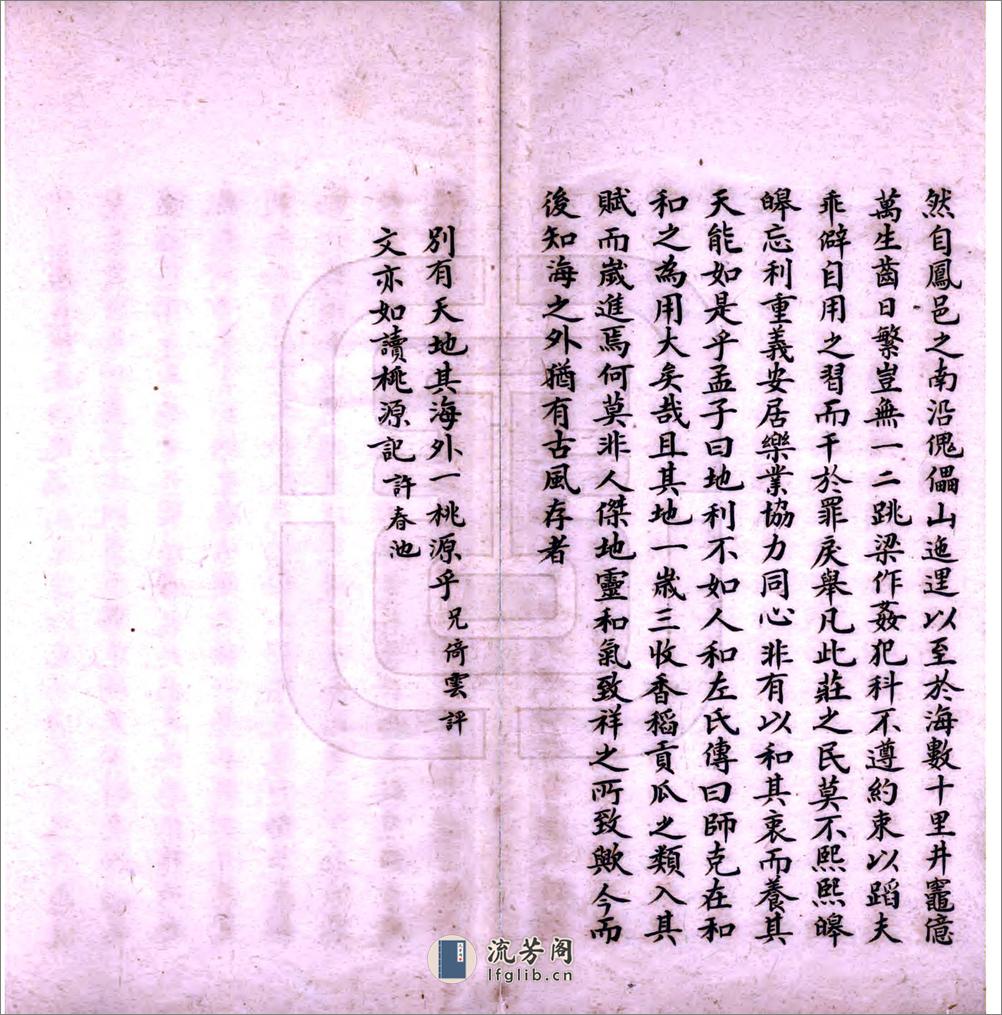 然自鳳邑之南沿傀儡山迤邐以至於海數十里井竈億
萬生齒日繁豈無一二跳梁作姦犯科不遵約束以蹈夫
乖僻自用之習而干於罪戾舉凡此莊之民莫不熙熙皞
皞忘利重義安居樂業協力同心非有以和其衷而養其
天能如是乎孟子曰地利不如人和左氏傳曰師克在和
和之為用大矣哉且其地一歲三收香稻貢瓜之類入其
賦而歲進焉何莫非人傑地靈和氣致祥之所致歟今而
後知海之外猶有古風存者
別有天地其海外一桃源乎 兄倚雲評
文亦如讀桃源記 許春池
流芳阁
lfglib.cn